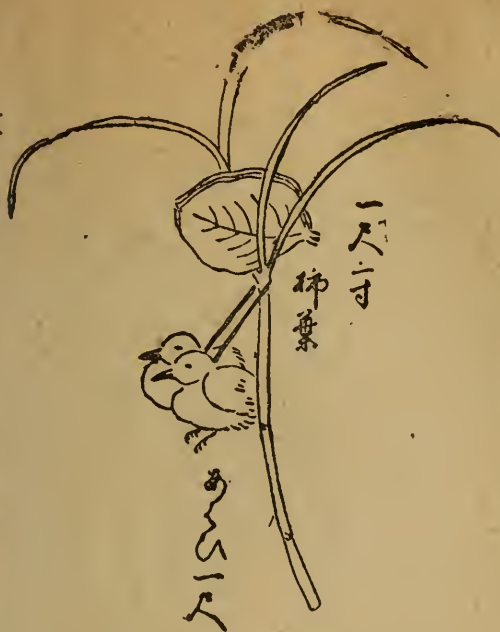 一尺二寸
柿葉
一尺